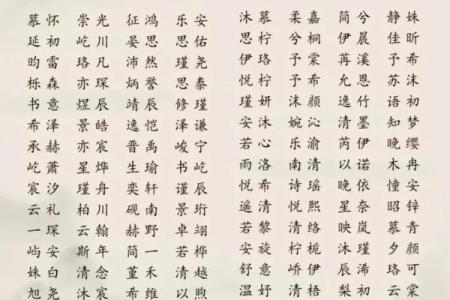 慕怀 崇光 征鸿 乐安 沐慕 柔嘉 简兮 静姝
延初 屹川 晏思 思佑 思柠 兮桐 伊晨 佳昕
昀雷 珞凡 沛然 瑾尧 伊珞 予棠 苒溪 予希
栎森 亦琛 炳誉 思泰 悦柠 予希 允恩 苏语
书意 煜辰 靖辰 修瑾 瑾妍 沫颜 逸竹 语初
希泽 景皓 逸恺 泽谦 安沐 清墨 初梦
承赫 宸 晋禹 峻宁 若心 沁渝 芮伊 晚缨
屹萧 星烨 生瑜 书屹 洛 南清 以诺 木冉
宸汐 瑾舟 奕轩 屹辰 悦希 诗瑶 晚依 憧安
云礼 柏川 砚南 景珩 遥清 悦熙 星奈 昭锌
一琛 云翰 赫野 卓翊 若黎 清络 映岚 慕青
屿安 赫年 简一 若烨 安旋 梦栀 辰瑾 夕颜
姝白 斯念 董禾 清越 舒意 峤伊 沐溪 珞可
旭尧 清宸 希维 以煦 温妤 清栖 梨初 云棠